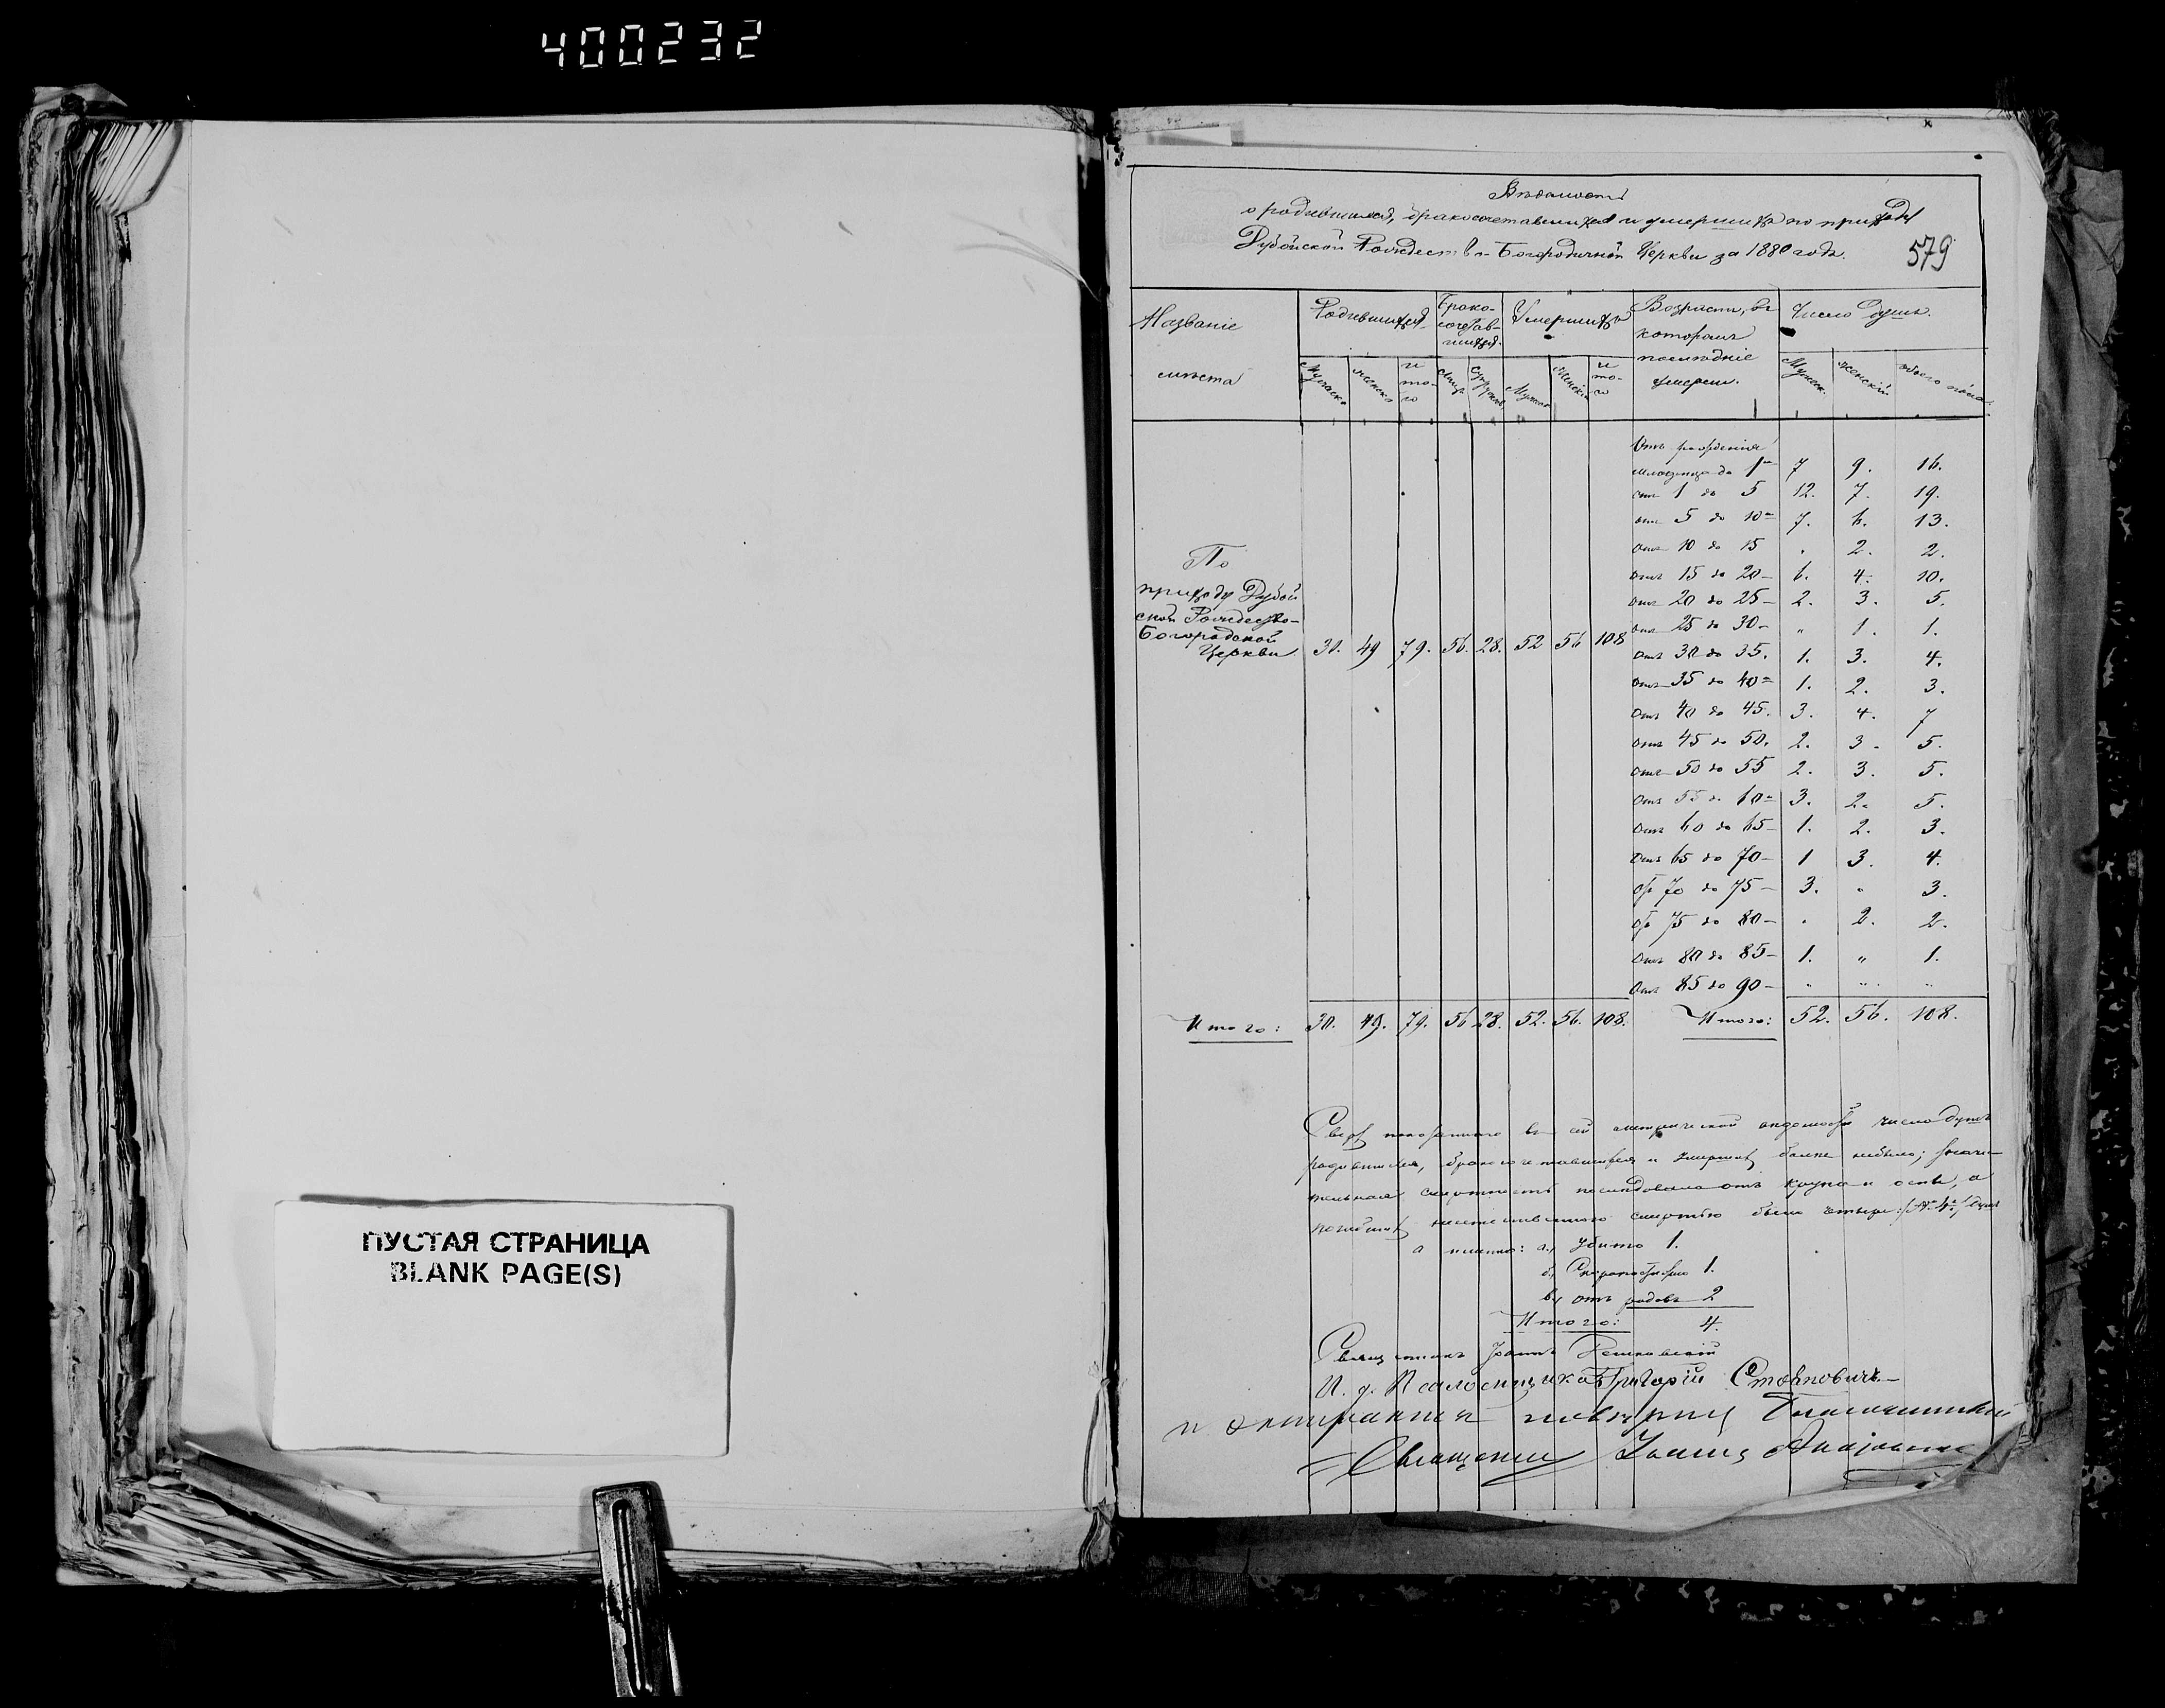 400232
ПУСТАЯ СТРАНИЦА
BLANK PAGE(S)
Вѣдомость
о родившихся, бракосочетавшихся и умершихъ по приходу
Дубойской Рождество-Богородичной Церкви за 1880 годъ.
579
Названіе мѣста
Родившихся
Брако-сочетав-шихся
Умершихъ
Возрастъ, въ которомъ послѣдніе умерли.
Число душъ.
Мужеска женска итого супруж. Мужеска женска итого Мужск. женскій обоего пола
По
приходу Дубой
ской Рождество-
Богородской
Церкви 30. 49 79. 56. 28. 52 56 108
Отъ рожденія
младенца до 1 7 9. 16.
отъ 1 до 5 12. 7. 19.
отъ 5 до 10 7. 6. 13.
Отъ 10 до 15 " 2. 2.
Отъ 15 до 20 6. 4. 10.
Отъ 20 до 25 2. 3. 5.
отъ 25 до 30 " 1. 1.
Отъ 30 до 35. 1. 3. 4.
Отъ 35 до 40 1. 2. 3.
Отъ 40 до 45. 3. 4. 7
Отъ 45 до 50. 2. 3. 5.
Отъ 50 до 55 2. 3. 5.
Отъ 55 до 60 3. 2. 5.
Отъ 60 до 65 1. 2. 3.
Отъ 65 до 70 1 3. 4.
От 70 до 75 3. " 3.
От 75 до 80 " 2. 2.
Отъ 80 до 85 1. " 1.
Отъ 85 до 90 " " "
Итого: 30. 49. 79. 56 28. 52. 56. 108. Итого: 52. 56. 108.
Сверх показаннаго въ сей метрической вѣдомости число душъ
родившихся, бракосочетавшихся и умерших болѣе небыло; значи-
тельная смертность послѣдовала отъ крупа и оспы, а
смертію было четыре: душ
а именно: а, убито 1.
б, Скоропостижно 1.
в, отъ родовъ 2
Итого: 4.
Священникъ Іоаннъ
И. д. Псаломщика Григорій Стояновичъ
Благочинный
Священникъ Іоаннъ